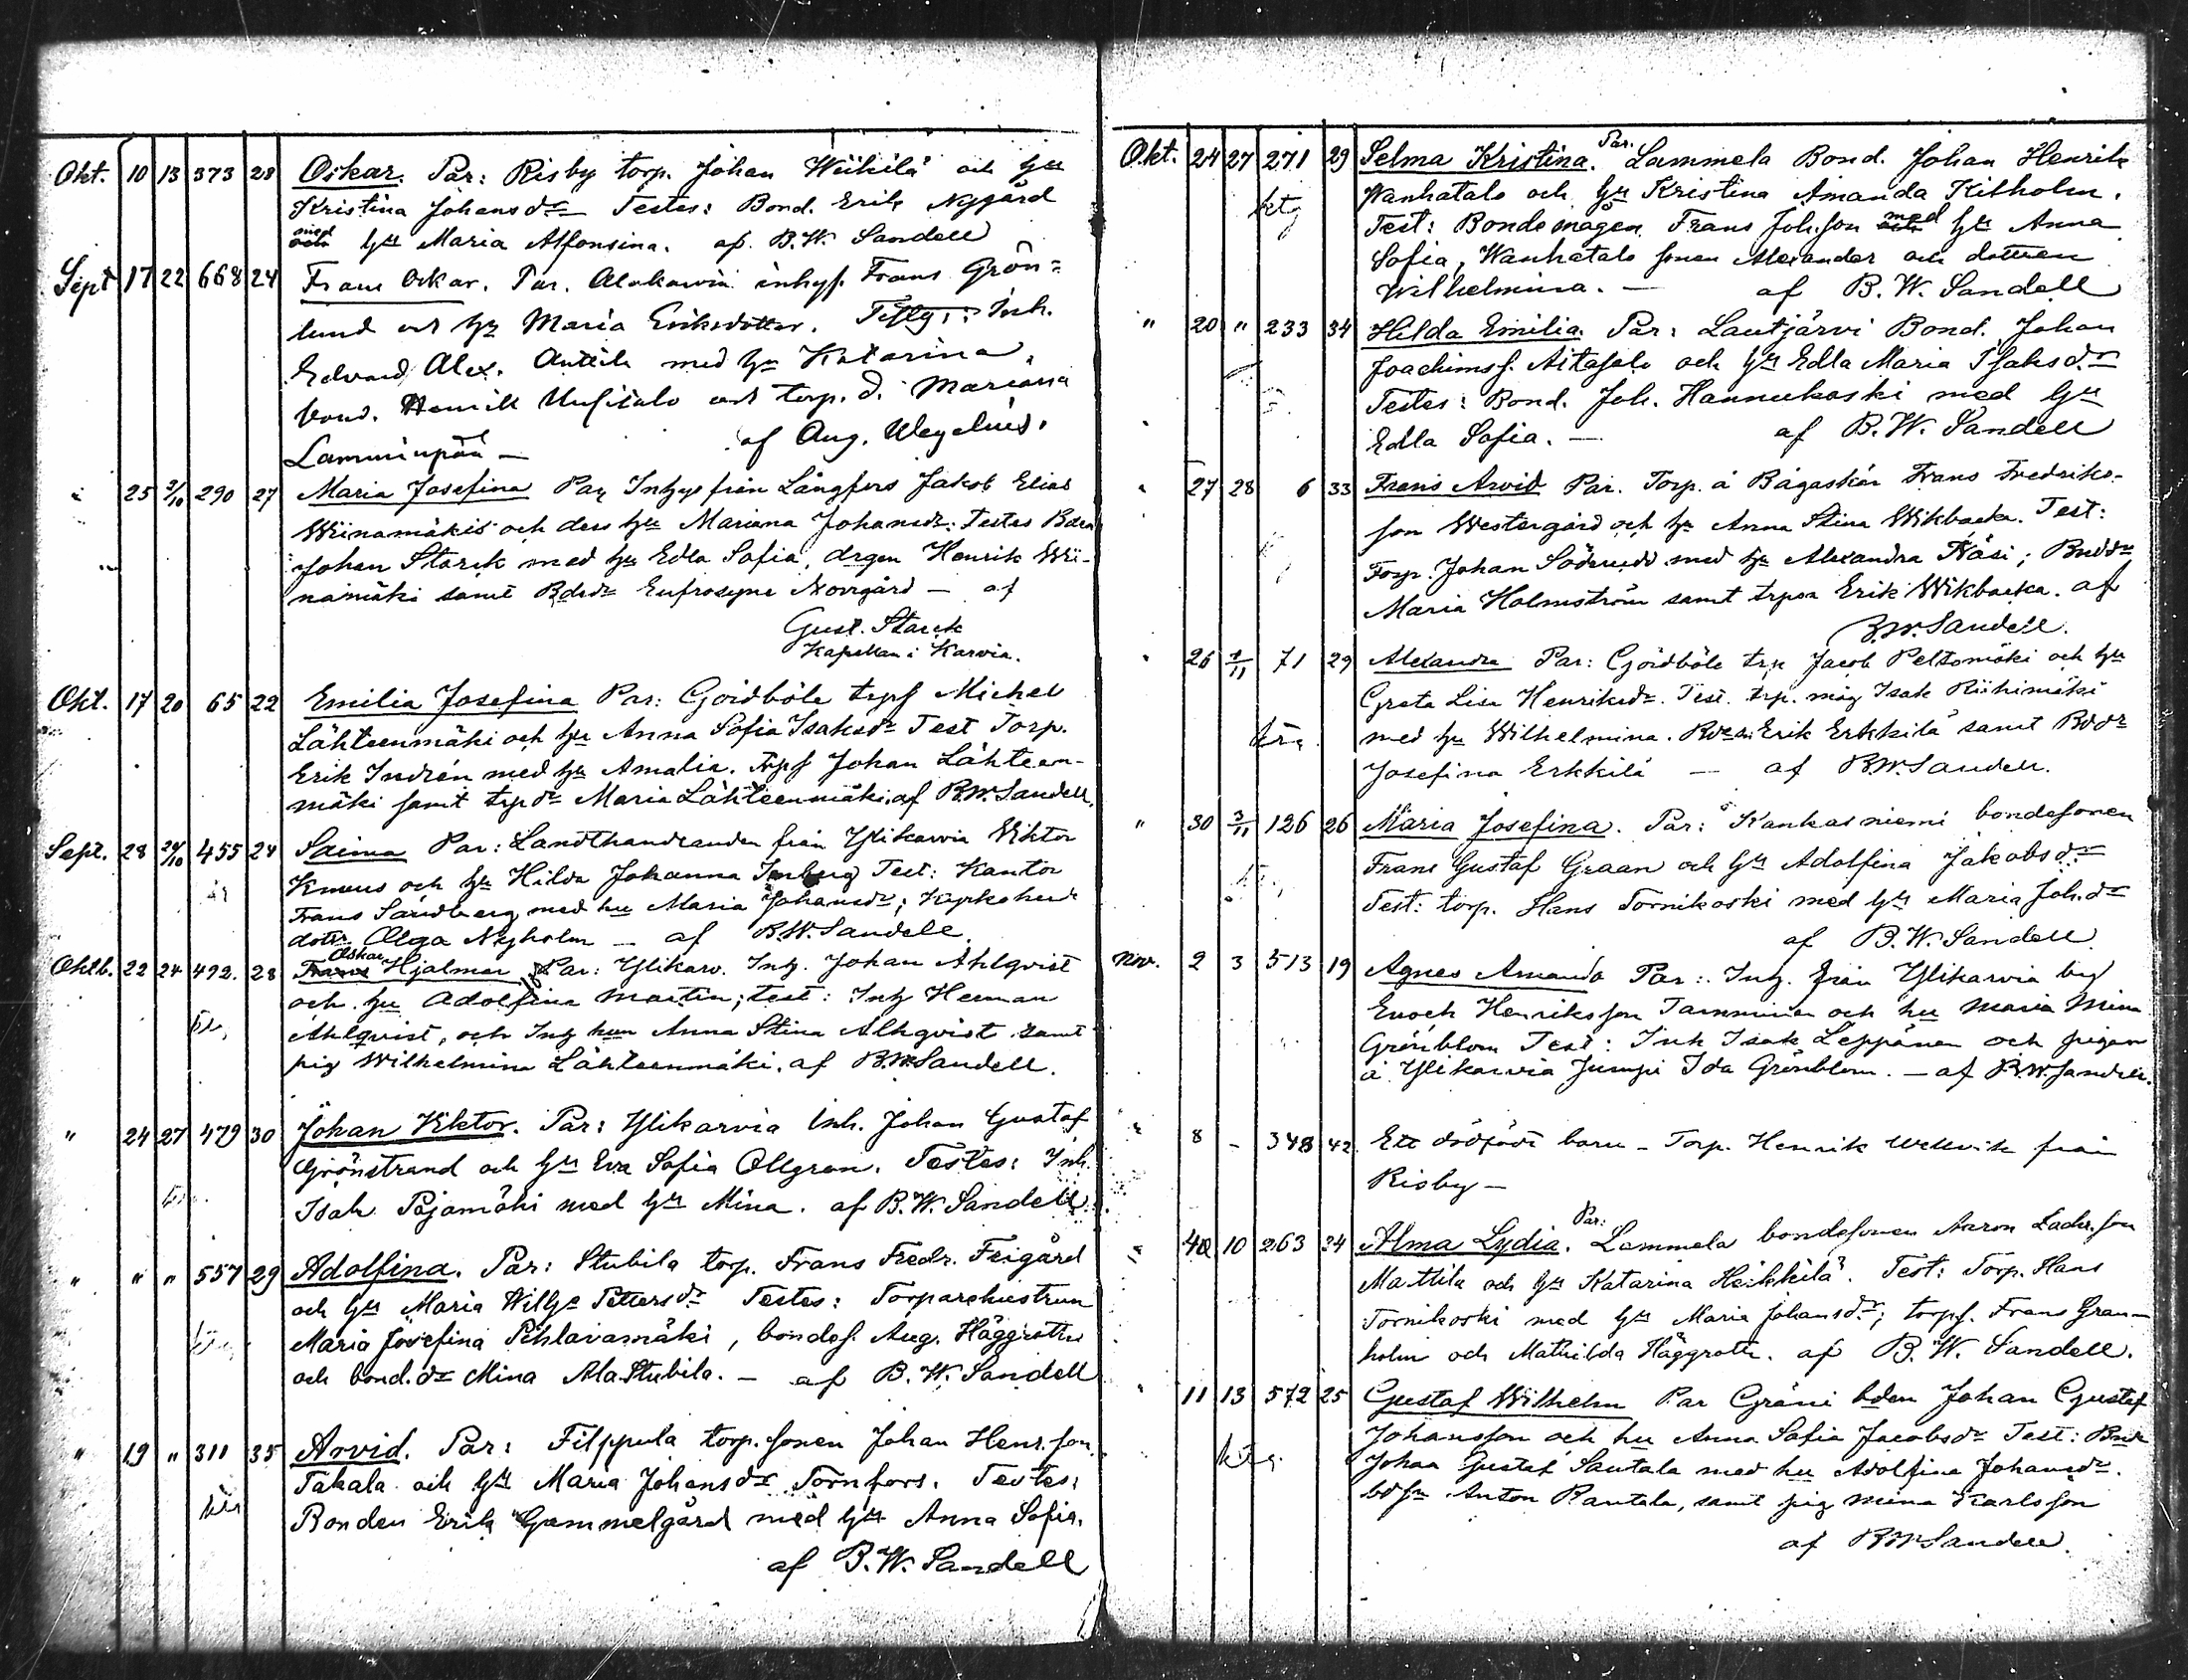 Okt. 10 13 373 28 Oskar. Par: Risby torp. Johan Wiikilä och hu
Kristina Johansdr Testes: Bond. Erik Nygård
med hu Maria Alfonsina. af. B.W. Sandell
Sept 17 22 668 24 Frans Oskar. Par. Alakarvia inhys. Frans Grön-
lund och hu Maria Eriksdotter. Testes: Inh.
Edvard Alex. Anttila med hu Katarina,
bond. Henrik Uusitalo och torp. d. Mariana
Lamminpää — af Aug. Wegelius.
" 25 2/10 290 27 Maria Josefina Par Inhys från Långfors Jakob Elias
Wiinamäkis och dess hu Mariana Johansdr: Testes Bden
Johan Starck med hu Edla Sofia, drgen Henrik Wii-
namäki samt Bdsdr Eufrosyne Norrgård — af
Gust. Starck
Kapellan i Karvia.
Okt. 17 20 65 22 Emilia Josefina Par: Goidböle trpf Michel
Lähteenmäki och hu Anna Sofia Isaksdr Test Torp.
Erik Indrén med hu Amalia. trpf Johan Lähteen-
mäki samt trpdr Maria Lähteenmäki. af B.W. Sandell.
Sept. 28 24/10 455 24 Saima Par: Landthandlanden från Ylikarvia Viktor
och hu Hilda Johanna Test: Kantor
Frans Sandberg med hu Maria Johansdr; Kyrkoherde
dottr Olga Nyholm — af B.W. Sandell.
Oktb. 22 24 492. 28 Oskar Hjalmar Par: Ylikarv. Inh. Johan Ahlqvist
och hu Adolfina Martin; test: Inh Herman
Ahlqvist, och Inh hun Anna Stina Alhqvist samt
pig Wilhelmina Lähteenmäki. af B.W. Sandell.
" 24 27 479 30 Johan Viktor. Par: Ylikarvia Inh. Johan Gustaf
Grönstrand och hu Eva Sofia Ollgren. Testes: Inh.
Isak Pajamäki med hu Mina. af B.W. Sandell.
" " " 557 29 Adolfina. Par: Stubila torp. Frans Fredr. Feigård
och hu Maria Wilh:a Pettersdr Testes: Torparehustrun
Maria Josefina Pihlavamäki, bondes. Aug. Häggroth
och bond.dr Mina Ala-Stubila. — af B.W. Sandell
" 19 " 311 35 Arvid. Par: Filppula torp. sonen Johan Henr.son
Takala och hu Maria Johansdr Tornfors. Testes:
Bonden Erik Gammelgård med hu Anna Sofia.
af B.W. Sandell
Okt. 24 27 271 29 Selma Kristina. Par. Lammela Bond. Johan Henrik
ktg Wanhatalo och hu Kristina Amanda Kitholm.
Test: Bondemågen Frans Joh.son med hu Anna
Sofia, Wanhatalo sonen Alexander och dottren
Wilhelmina. — af B.W. Sandell
" 20 " 233 34 Hilda Emilia. Par: Lautjärvi Bond. Johan
Joachimss. Aitasalo och hu Edla Maria Isaksdr
Testes: Bond. Joh. Hannukoski med hu
Edla Sofia. — af B.W. Sandell
" 27 28 6 33 Frans Arvid Par. Torp. å Bågaskär Frans Fredriks-
son Westergård och hu Anna Stina Wikbacka. Test:
Torp. Johan med hu Alexandra Näsi; Bnddr
Maria Holmström samt trpsn Erik Wikbacka. af
B.W. Sandell.
" 26 1/11 71 29 Alexandra Par: Goidböle trp. Jacob Peltomäki och hu
Greta Lisa Henriksdr. Test. trp. måg Isak Riihimäki
med hu Wilhelmina. Erik Erkkilä samt Bddr
Josefina Erkkilä — af B.W. Sandell.
" 30 3/11 126 26 Maria Josefina. Par: Kankasniemi bondesonen
Frans Gustaf Graan och hu Adolfina Jakobsdr
Test: torp. Hans Tornikoski med hu Maria Joh.dr
af B.W. Sandell.
Nov. 2 3 513 19 Agnes Amanda Par: Inh. från Ylikarvia by
Enoch Henriksson Tamminen och hu Maria Mina
Grönblom Test: Inh Isak Leppänen och pigan
å Ylikarvia Ida Grönblom. — af B.W. Sandell.
" 8 - 348 42 Ett dödfödt barn — Torp. Henrik Wellvik från
Risby —
" 10 263 24 Alma Lydia. Par: Lammela bondesonen Aaron Zachr.son
Mattila och hu Katarina Heikkilä. Test: Torp. Hans
Tornikoski med hu Maria Johansdr; torps. Frans Gran-
holm och Mathilda Häggroth. af B.W. Sandell.
" 11 13 572 25 Gustaf Wilhelm Par Gräni bden Johan Gustaf
Johansson och hu Anna Sofia Jacobsdr Test: Bnde
Johan Gustaf Santala med hu Adolfina Johansdr.
bdsn Anton Rantala, samt pig Mina Karlsson
af B.W. Sandell.